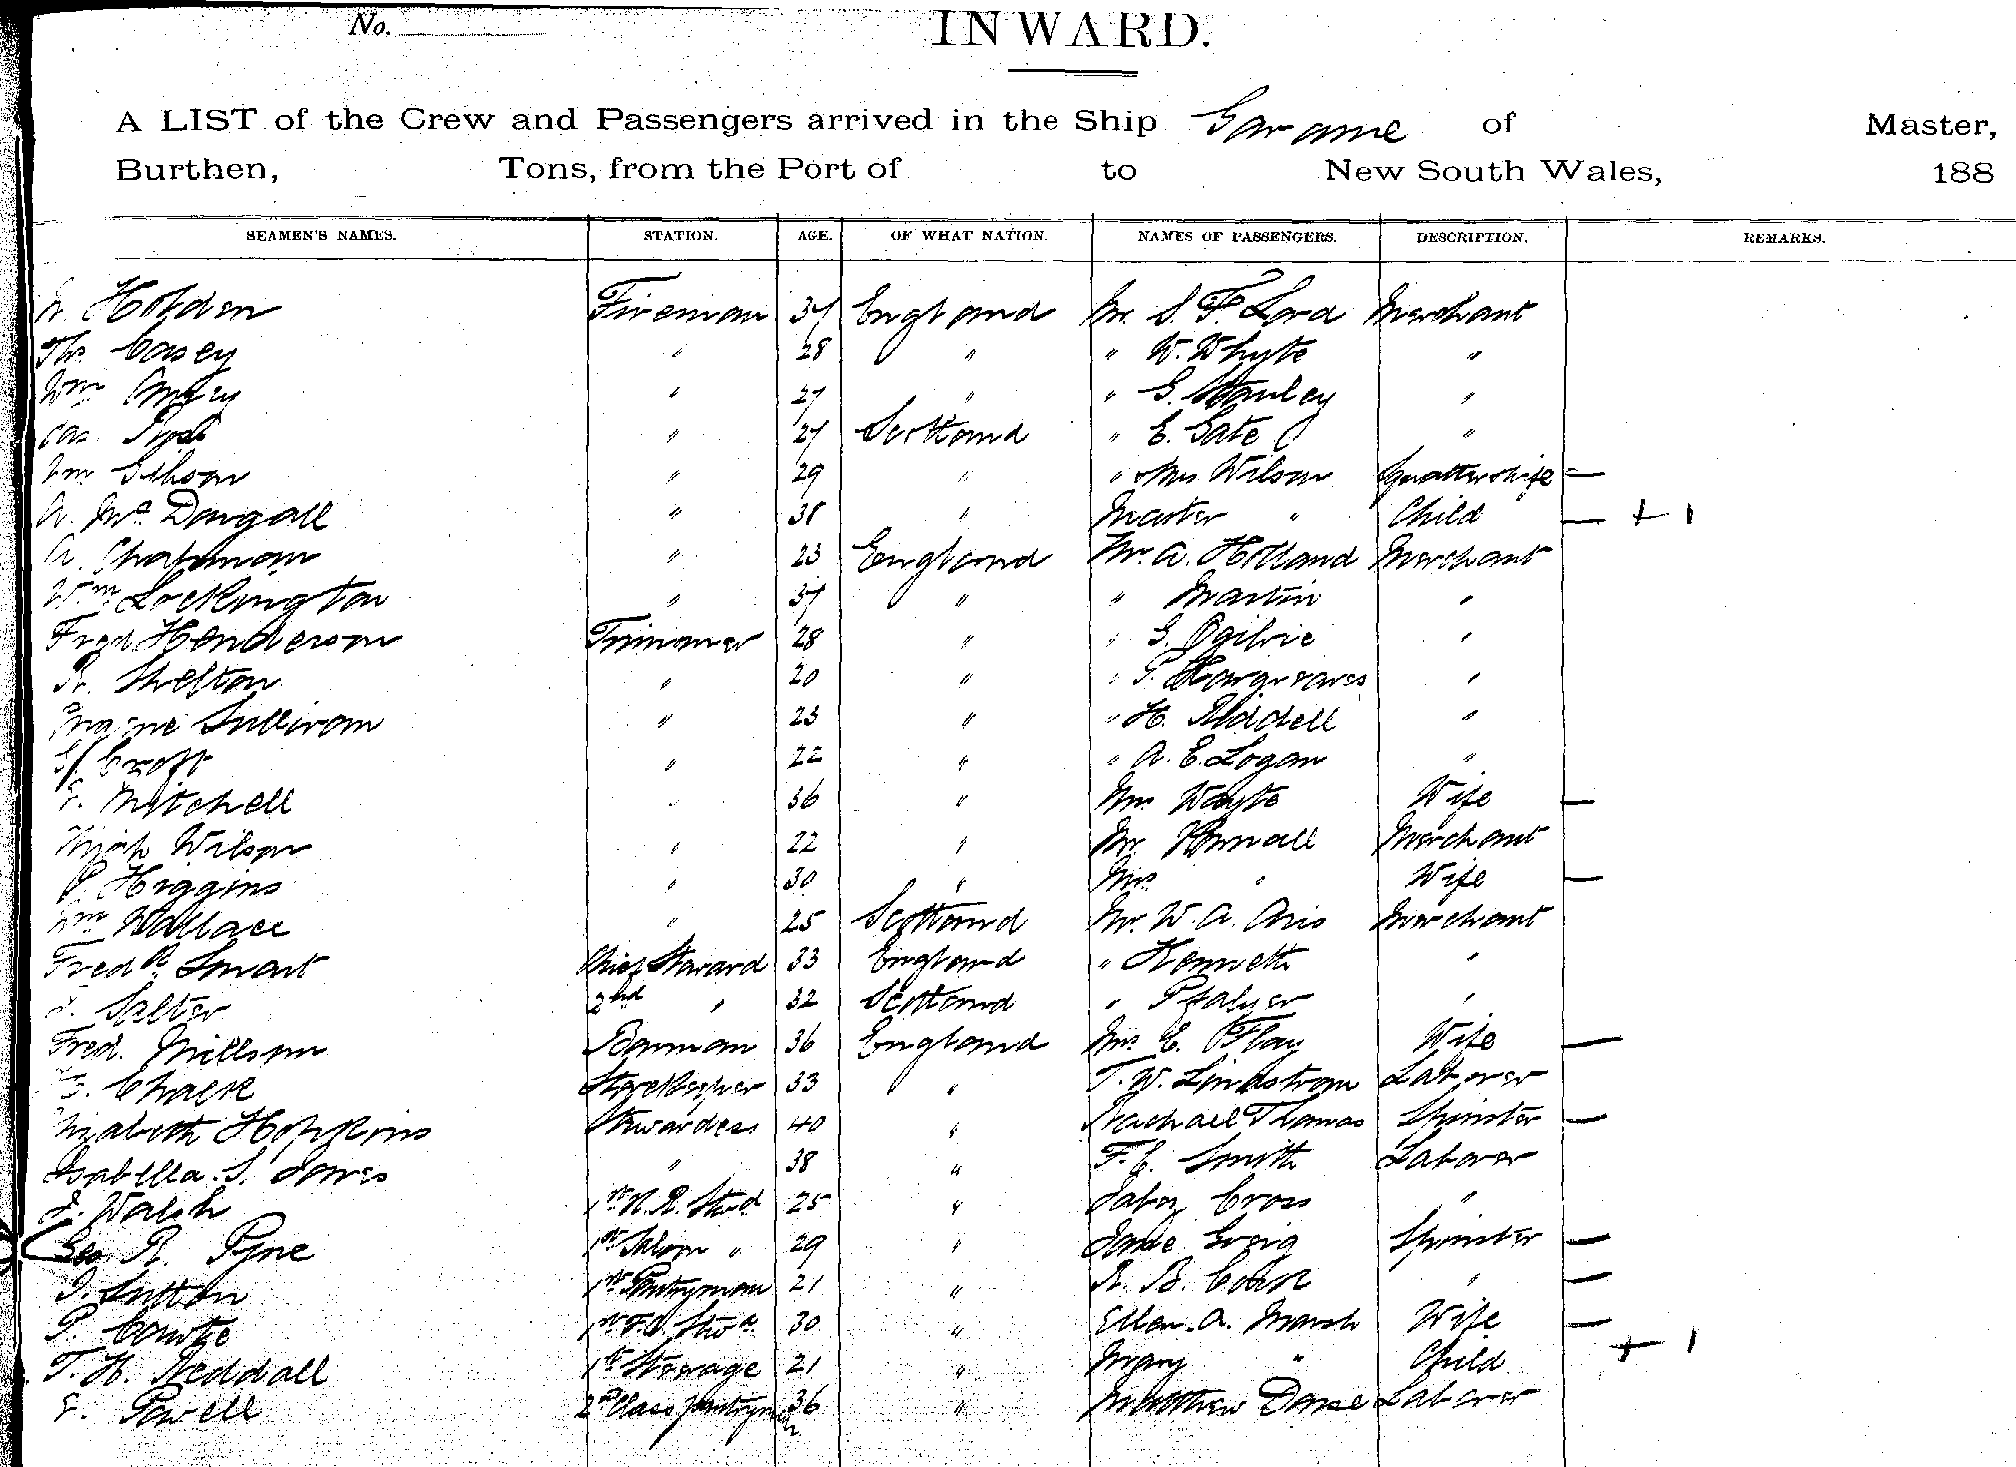 No.
INWARD.
A LIST of the Crew and Passengers arrived in the Ship of Master,
Burthen, Tons, from the Port of to New South Wales, 188
SEAMEN'S NAMES. STATION. AGE. OF WHAT NATION. NAMES OF PASSENGERS. DESCRIPTION. REMARKS.
Holden Fireman 37 England Mr. S. F. Lord Merchant
Thos. Casey " 28 " " W. Whyte "
Wm " 27 " " G. Stanley "
Jas. " 27 Scotland " E. Gate "
Wm Gibson " 29 " " Mrs Wilson —
A. Mc Dougall " 38 " Master " Child — + 1
A. Chapman " 23 England Mr. A. Holland Merchant
Wm Lockington " 37 " " Martin "
Fred Henderson Trimmer 28 " " G. Ogilvie "
R. Shelton " 20 " " Hargreaves "
Sullivan " 23 " " H. Riddell "
Croft " 22 " " A. E. Logan "
Mitchell " 36 " Mrs Whyte Wife —
Wilson " 22 " Mr Merchant
P. Higgins " 30 " Mrs " Wife —
Wm Wallace " 25 Scotland Mr. W. A. Merchant
Fredk Smart Chief Steward 33 England " Kenneth "
Salter 2nd " 32 Scotland " "
Fred. Millson Barman 36 England Mrs E. Flay Wife —
Storekeeper 33 " T. W. Lindstrom Laborer
Elizabeth Hopkins Stewardess 40 " Rachael Thomas Spinster —
Isabella S. Jones " 38 " Smith Laborer
J. Walsh 25 " Cross "
Geo R. Pyne 1st " 29 " Jane Greig Spinster —
Sutton 1st Pantryman 21 " R. B. " —
P. 30 " Ellen A. Marsh Wife —
T. H. 1st Steerage 21 " Mary " Child + 1
Powell 2nd Class Pantryman 36 " Matthew Laborer